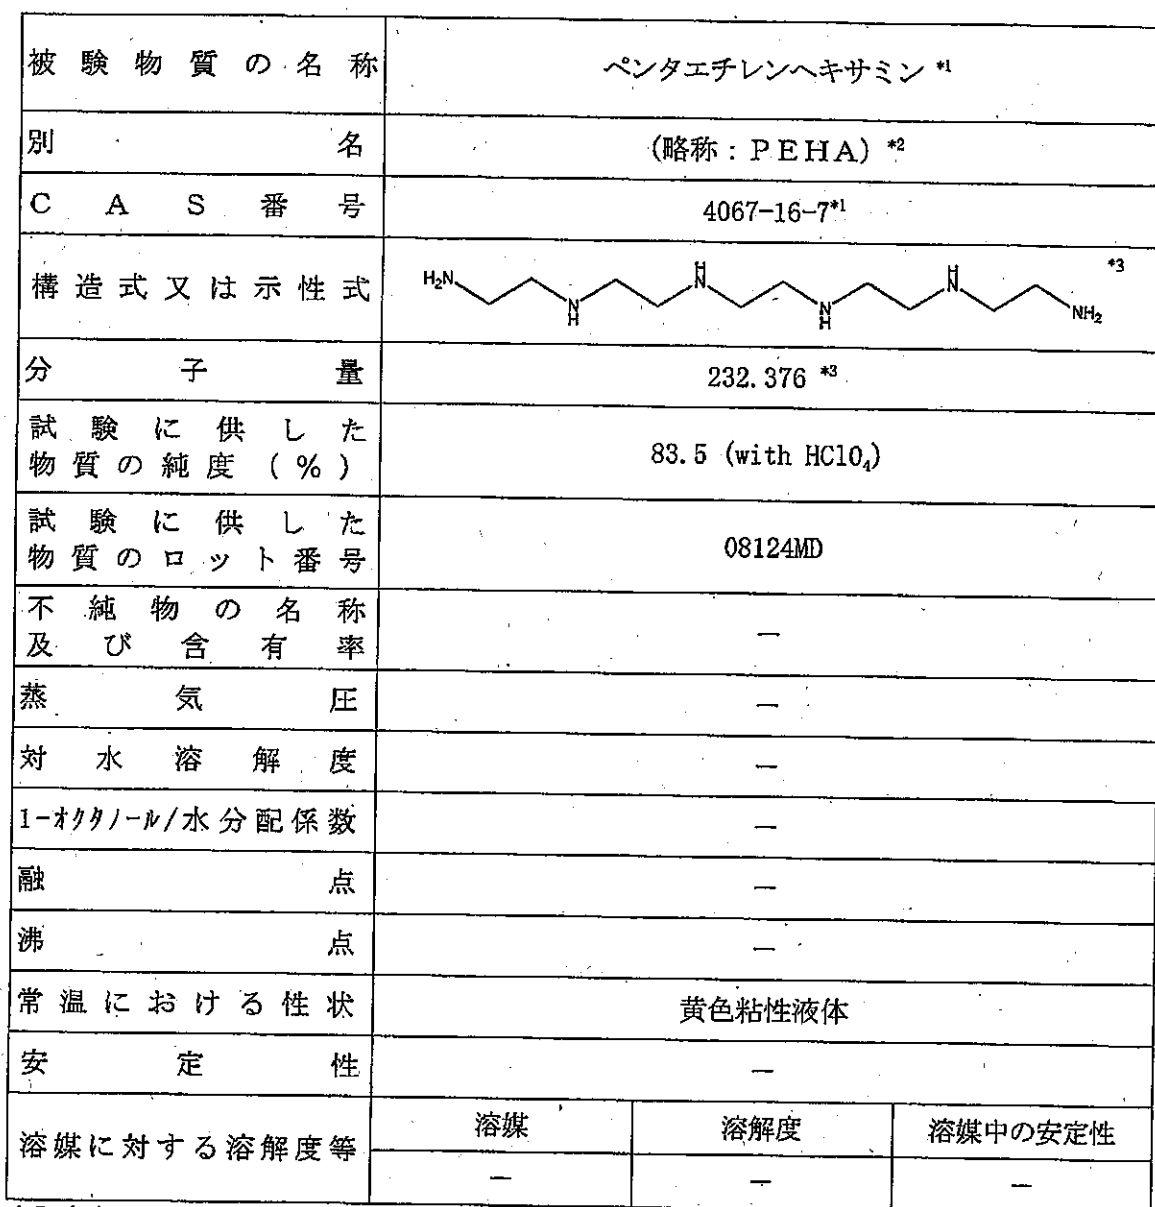 被験物質の名称 ペンタエチレンヘキサミン *1
別名 (略称：PEHA) *2
CAS番号 4067-16-7*1
構造式又は示性式 H2N N H H N N H H N NH2 *3
分子量 232.376 *3
試験に供した
物質の純度（％） 83.5 (with HClO4)
試験に供した
物質のロット番号 08124MD
不純物の名称
及び含有率 －
蒸気圧 －
対水溶解度 －
1-オクタノール/水分配係数 －
融点 －
沸点 －
常温における性状 黄色粘性液体
安定性 －
溶媒に対する溶解度等 溶媒 溶解度 溶媒中の安定性
－ － －